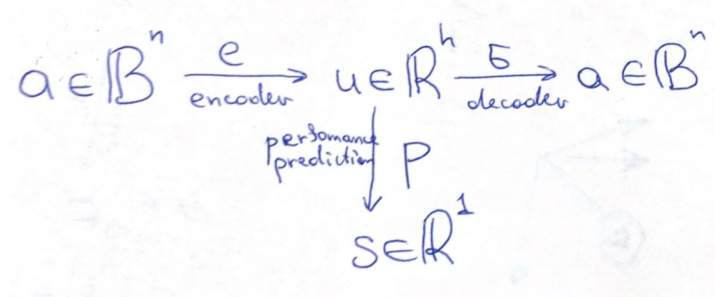 a ∈ 𝔹ⁿ e encoder u ∈ ℝʰ б decoder a ∈ 𝔹ⁿ
perfomance
prediction P
s ∈ ℝ¹